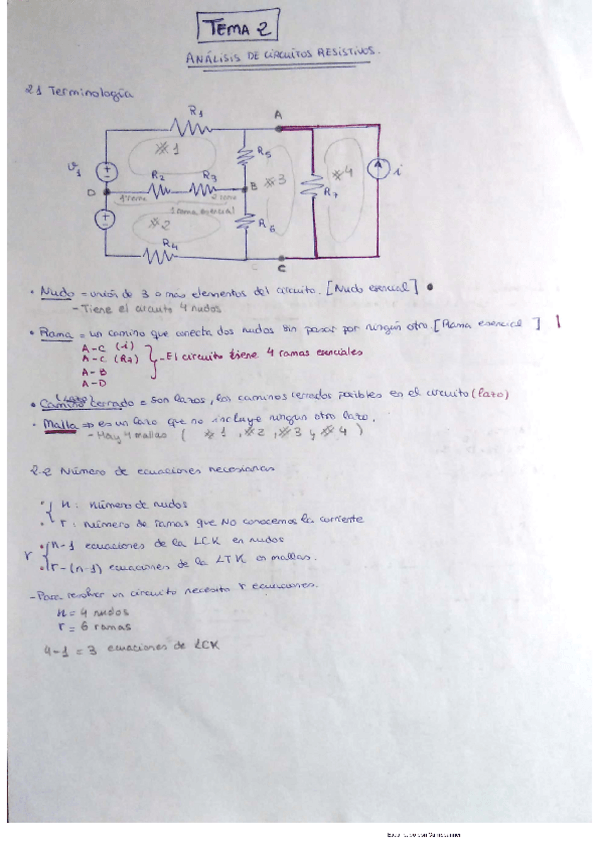 TEMA 2
ANÁLISIS DE CIRCUITOS RESISTIVOS.
2.1 Terminología
R1
A
#1
R5
V1
R2
R3
#3
#4
i
D
B
R7
1 rama
2 rama
1 rama esencial
#2
R6
R4
C
• Nudo = unión de 3 o más elementos del circuito. [Nudo esencial] •
- Tiene el circuito 4 nudos
• Rama = un camino que conecta dos nudos sin pasar por ningún otro. [Rama esencial ] |
A-C (i)
A-C (R7)
- El circuito tiene 4 ramas esenciales
A-B
A-D
• Camino cerrado = son lazos, los caminos cerrados posibles en el circuito (lazo)
• Malla => es un lazo que no incluye ningun otro lazo.
- Hay 4 mallas ( #1, #2, #3 y #4 )
2.2 Número de ecuaciones necesarias
• n: número de nudos
• r: número de ramas que NO conocemos la corriente
r
• n-1 ecuaciones de la LCK en nudos
• r-(n-1) ecuaciones de la LTK en mallas.
- Para resolver un circuito necesito r ecuaciones.
n = 4 nudos
r = 6 ramas
4-1 = 3 ecuaciones de LCK